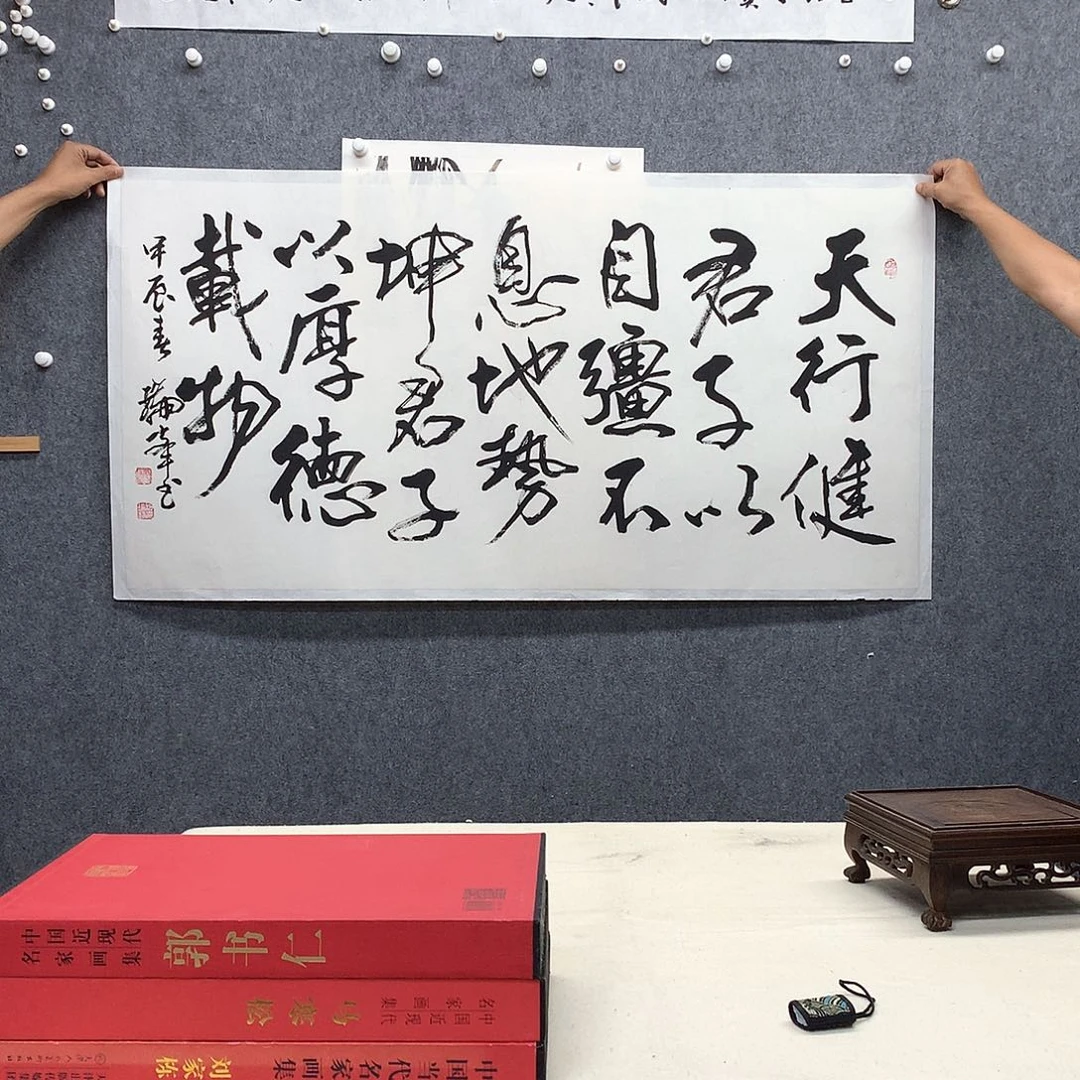 天行健
君子以
自彊不
息地勢
坤君子
以厚德
載物
甲辰春
中国近现代
名家画集
郭书仁
中国近现代
名家画集
马寒松
中国当代名家画集
刘家栋